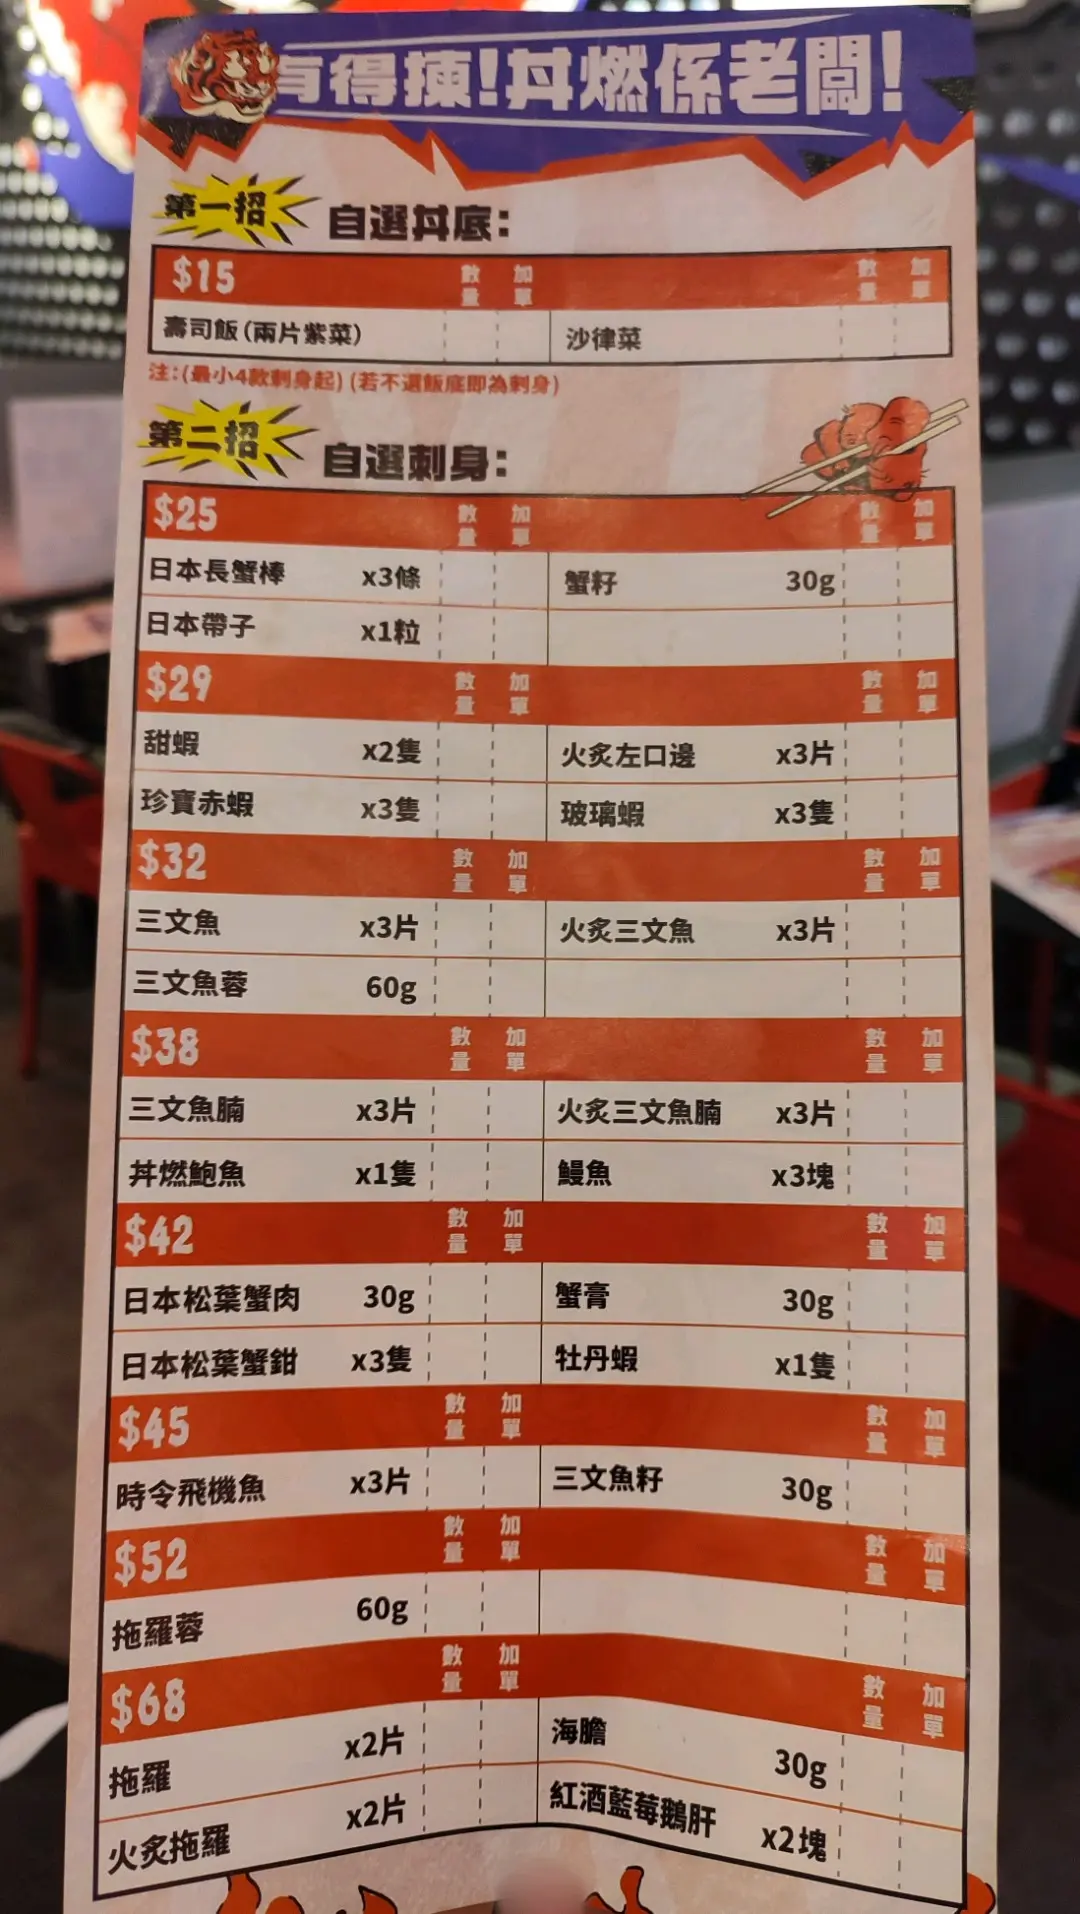 有得揀!丼燃係老闆!
第一招 自選丼底:
$15 數量 加單 數量 加單
壽司飯(兩片紫菜) 沙律菜
注:(最小4款刺身起) (若不選飯底即為刺身)
第二招 自選刺身:
$25 數量 加單 數量 加單
日本長蟹棒 x3條 蟹籽 30g
日本帶子 x1粒
$29 數量 加單 數量 加單
甜蝦 x2隻 火炙左口邊 x3片
珍寶赤蝦 x3隻 玻璃蝦 x3隻
$32 數量 加單 數量 加單
三文魚 x3片 火炙三文魚 x3片
三文魚蓉 60g
$38 數量 加單 數量 加單
三文魚腩 x3片 火炙三文魚腩 x3片
丼燃鮑魚 x1隻 鰻魚 x3塊
$42 數量 加單 數量 加單
日本松葉蟹肉 30g 蟹膏 30g
日本松葉蟹鉗 x3隻 牡丹蝦 x1隻
$45 數量 加單 數量 加單
時令飛機魚 x3片 三文魚籽 30g
$52 數量 加單 數量 加單
拖羅蓉 60g
$68 數量 加單 數量 加單
拖羅 x2片 海膽 30g
火炙拖羅 x2片 紅酒藍莓鵝肝 x2塊